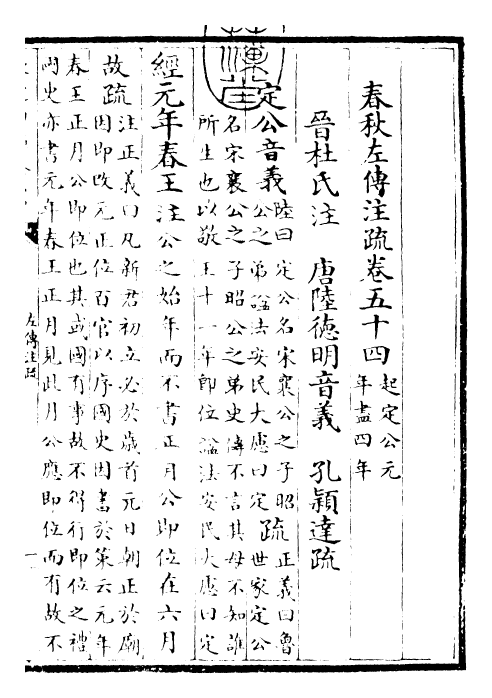 春秋左傳注疏卷五十四 起定公元年盡四年
晉杜氏注 唐陸徳明音義 孔穎達疏
定公音義 陸曰定公名宋襄公之子昭公之弟諡法安民大慮曰定 疏 正義曰魯世家定公
名宋襄公之子昭公之弟史傳不言其母不知誰
所生也以敬王十一年即位諡法安民大慮曰定
經元年春王 注公之始年而不書正月公即位在六月
故 疏 注正義曰凡新君初立必於歲首元日朝正於廟
因即改元正位百官以序國史因書於策云元年
春王正月公即位也其或國有事故不得行即位之禮
史亦書元年春王正月見此月公應即位而有故不
左傳注疏